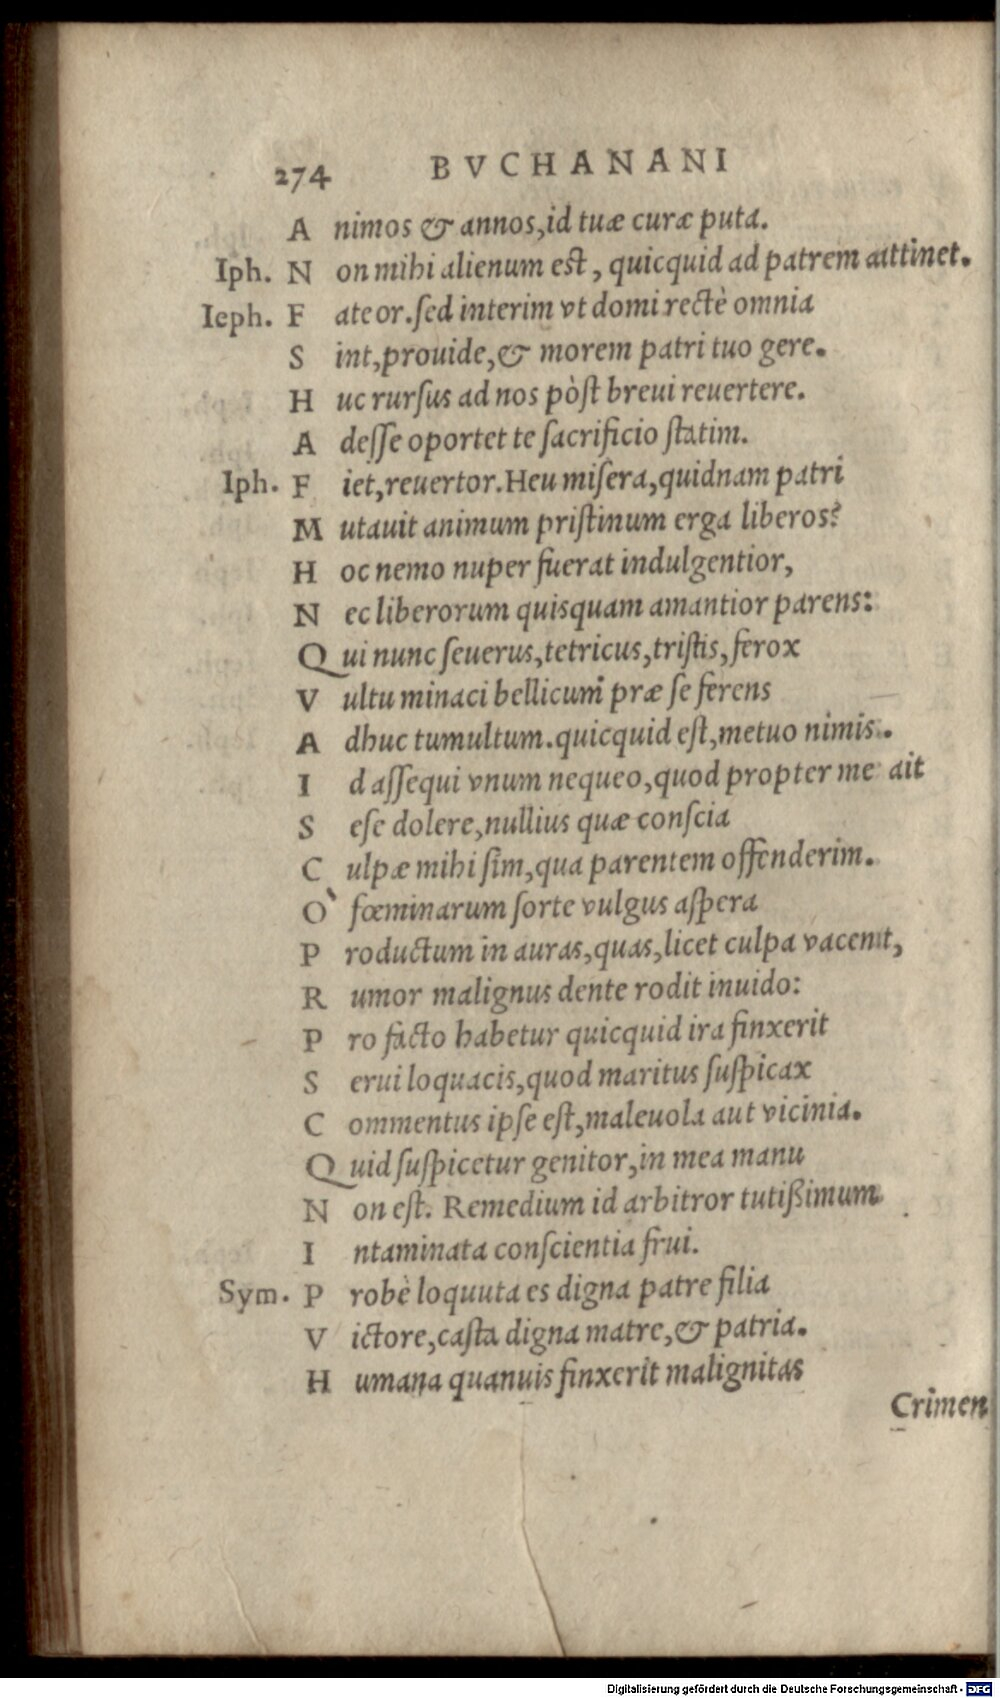 274 BVCHANANI
Animos & annos, id tuæ curæ puta.
Iph. Non mihi alienum est, quicquid ad patrem attinet.
Ieph. Fateor. sed interim vt domi rectè omnia
Sint, prouide, & morem patri tuo gere.
Huc rursus ad nos pòst breui reuertere.
Adesse oportet te sacrificio statim.
Iph. Fiet, reuertor. Heu misera, quidnam patri
Mutauit animum pristinum erga liberos?
Hoc nemo nuper fuerat indulgentior,
Nec liberorum quisquam amantior parens:
Qui nunc seuerus, tetricus, tristis, ferox
Vultu minaci bellicum præ se ferens
Adhuc tumultum. quicquid est, metuo nimis.
Id assequi vnum nequeo, quod propter me ait
Sese dolere, nullius quæ conscia
Culpæ mihi sim, qua parentem offenderim.
Ò fœminarum sorte vulgus aspera
Productum in auras, quas, licet culpa vacent,
Rumor malignus dente rodit inuido:
Pro facto habetur quicquid ira finxerit
Serui loquacis, quod maritus suspicax
Commentus ipse est, maleuola aut vicinia.
Quid suspicetur genitor, in mea manu
Non est. Remedium id arbitror tutißimum
Intaminata conscientia frui.
Sym. Probè loquuta es digna patre filia
Victore, casta digna matre, & patria.
Humana quanuis finxerit malignitas
Crimen
Digitalisierung gefördert durch die Deutsche Forschungsgemeinschaft - DFG